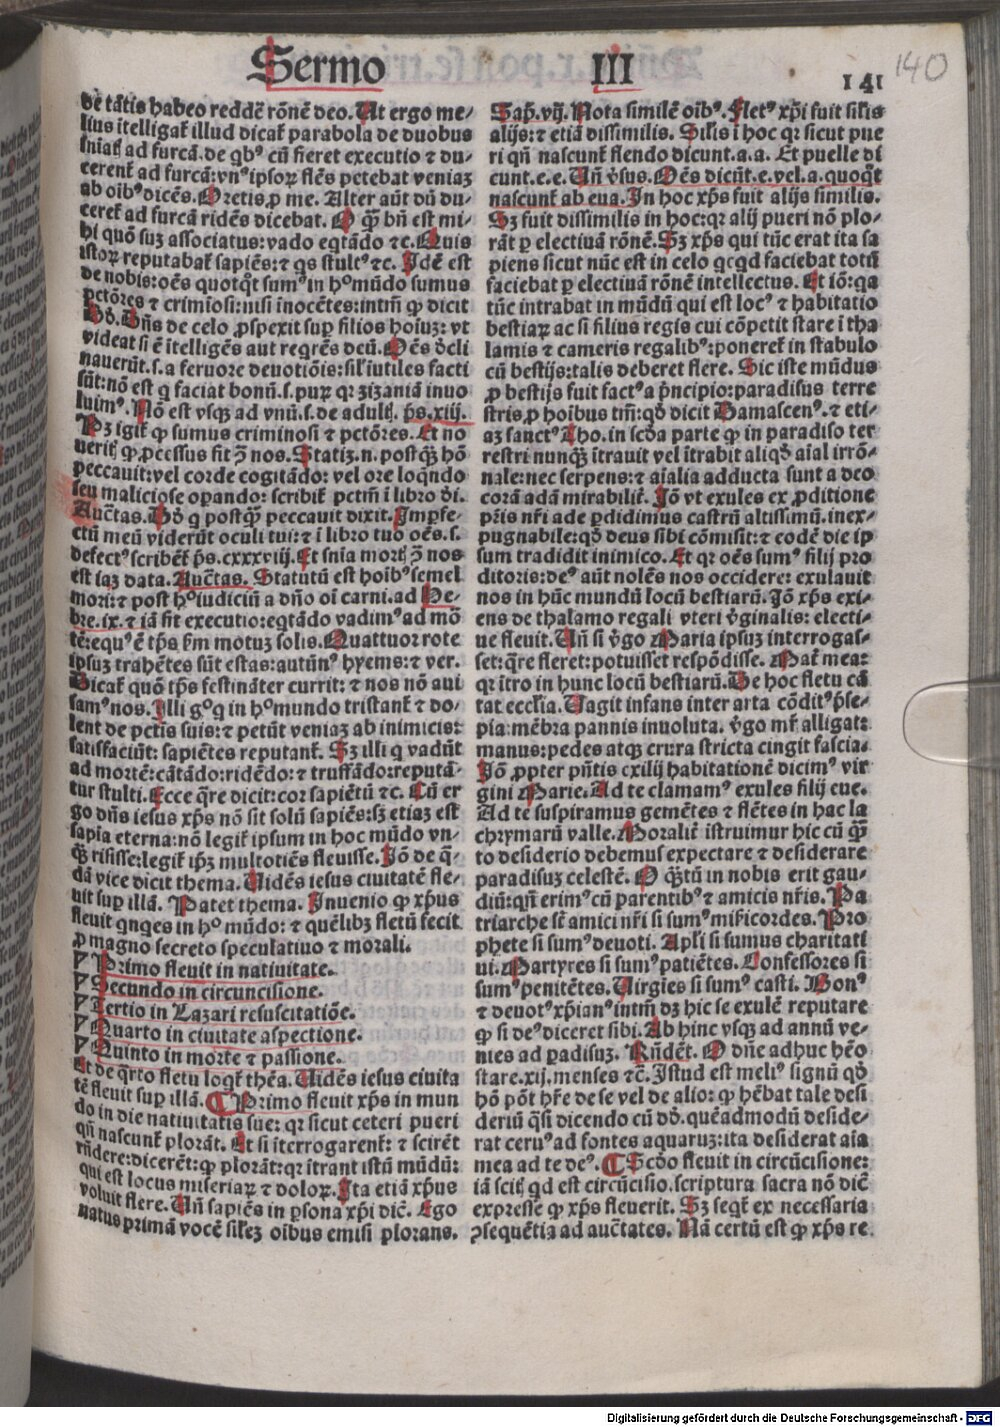 Sermo III 141
140
dē tātis habeo reddē rōnē deo. Ut ergo me⸗
lius ītelligaꝭ illud dicaꝭ parabola de duobus
sniatꝭ ad furcā. de qbꝰ cū fieret executio ⁊ du⸗
cerenꝭ ad furcā: vnꝰ ipsoꝝ flēs petebat veniaꝫ
ab oibꝰ dicēs. Oretis ꝓ me. Alter aūt dū du⸗
cereꝭ ad furcā ridēs dicebat. O q̄ꝫ bn̄ est mi⸗
hi quō suꝫ associatus: vado eqtādo ⁊c. Quis
istoꝝ reputabaꝭ sapiēs: ⁊ qs stultꝰ ⁊c. Idē est
de nobis: oēs quotqꝭ sumꝰ in hꝰ mūdo sumus
pctōres ⁊ crimiosi: nisi inocētes: intm̄ ꝙ dicit
Dō. Dn̄s de celo ꝓspexit suꝑ filios hoiuꝫ: vt
videat si ē itelligēs aut reqrēs deū. Oēs dcli
nauerūt. s. a feruore deuotiōis: siꝉ iutiles facti
sūt: nō est q faciat bonū. s. puꝝ qꝛ zizaniā inuo
luimꝰ. Nō est vsqꝫ ad vnū. s. de adultꝭ. ps. xiij.
Pꝫ igiꝭ ꝙ sumus criminosi ⁊ pctōres. Et no
ueritꝭ ꝙ ꝓcessus fit ꝯ nos. Statiꝫ. n. postq̄ꝫ hō
peccauit: vel corde cogitādo: vel ore loqndo
seu maliciose oꝑando: scribiꝭ pctm̄ i libro di.
Auctas. Dō q postq̄ꝫ peccauit dixit. Imꝑfe⸗
ctū meū viderūt oculi tui: ⁊ i libro tuo oēs. s.
defectꝰ scribēꝭ ps. cxxxviij. Et snia mortꝭ ꝯ nos
est iaꝫ data. Auctas. Statutū est hoibꝰ semel
mori: ⁊ post hꝰ iudiciū a dn̄o oi carni. ad He⸗
bre. ix. ⁊ iā fit executio: eqtādo vadimꝰ ad mō
tē: equꝰ ē tp̄s ẜm motuꝫ solis. Quattuor rote
ipsuꝫ trahētes sūt estas: autūnꝰ hyems: ⁊ ver.
Dicaꝭ quō tp̄s festināter currit: ⁊ nos nō aui
samꝰ nos. Illi gͦqͥ in hꝰ mundo tristanꝭ ⁊ do⸗
lent de pctis suis: ⁊ petūt veniaꝫ ab inimicis:
satisfaciūt: sapiētes reputanꝭ. Sꝫ illi q vadūt
ad mortē: cātādo: ridēdo: ⁊ truffādo: reputā⸗
tur stulti. Ecce qr̄e dicit: cor sapiētū ⁊c. Cū er
go dn̄s iesus xp̄s nō sit solū sapiēs: sꝫ etiaꝫ est
sapia eterna: nō legiꝭ ipsum in hoc mūdo vn⸗
q̄ꝫ risisse: legiꝭ ip̄ꝫ multotiēs fleuisse. Iō de q̄⸗
dā vice dicit thema. Uidēs iesus ciuitatē fle⸗
uit suꝑ illā. Patet thema. Inuenio ꝙ xp̄us
fleuit qnqes in hꝰ mūdo: ⁊ quēlibꝫ fletū fecit
ꝓ magno secreto speculatiuo ⁊ morali.
Primo fleuit in natiuitate.
Secundo in circuncisione.
Tertio in Lazari resuscitatiōe.
Quarto in ciuitate aspectione.
Quinto in morte ⁊ passione.
Et de qͣrto fletu logꝭ thēa. Uidēs iesus ciuita
tē fleuit suꝑ illā. Primo fleuit xp̄s in mun
do in die natiuitatis sue: qꝛ sicut ceteri pueri
qn̄ nascunꝭ plorāt. Et si īterrogarenꝭ: ⁊ scirēt
rn̄dere: dicerēt: ꝙ plorāt: qꝛ itrant istū mūdū:
qui est locus miseriaꝝ ⁊ doloꝝ. Ita etiā xp̄us
voluit flere. Un̄ sapiēs in ꝑsona xp̄i dic̄. Ego
natus primā vocē silꝫ oibus emisi plorans.
Sap. vij. Nota similē oibꝰ. Fletꝰ xp̄i fuit silis
alijs: ⁊ etiā dissimilis. Silis i hoc qꝛ sicut pue
ri qn̄ nascunꝭ flendo dicunt. a.a. Et puelle di
cunt. e.e. Un̄ ꝟsus. Oēs dicūt. e. vel. a. quoqͦt
nascunꝭ ab eua. In hoc xp̄s fuit alijs similis.
Sꝫ fuit dissimilis in hoc: qꝛ alij pueri nō plo⸗
rāt ꝑ electiuā rōnē. Sꝫ xp̄s qui tūc erat ita sa
piens sicut nūc est in celo qcqd faciebat totū
faciebat ꝑ electiuā rōnē intellectus. Et iō: qa
tūc intrabat in mūdū qui est locꝰ ⁊ habitatio
bestiaꝝ ac si filius regis cui cōpetit stare i tha
lamis ⁊ cameris regalibꝰ: ponereꝭ in stabulo
cū bestijs: talis deberet flere. Sic iste mūdus
ꝓ bestijs fuit factꝰ a pncipio: paradisus terre
stris ꝓ hoibus tm̄: qd dicit Damascenꝰ. ⁊ eti⸗
aꝫ sanctꝰ Tho. in scd̄a parte ꝙ in paradiso ter
restri nunq̄ꝫ itrauit vel itrabit aliqd aial irrō⸗
nale: nec serpens: ⁊ aialia adducta sunt a deo
corā adā mirabiliꝭ. Iō vt exules ex ꝓditione
pr̄is nr̄i ade ꝑdidimus castrū altissimū. inex⸗
pugnabile: qd deus sibi cōmisit: ⁊ eodē die ip
sum tradidit inimico. Et qꝛ oēs sumꝰ filij pro
ditoris: deꝰ aūt nolēs nos occidere: exulauit
nos in hūc mundū locū bestiarū. Iō xp̄s exi⸗
ens de thalamo regali vteri ꝟginalis: electi⸗
ue fleuit. Un̄ si ꝟgo Maria ipsuꝫ interrogas⸗
set: qr̄e fleret: potuisset respōdisse. Maꝭ mea:
qꝛ itro in hunc locū bestiarū. De hoc fletu cā
tat ecclia. Uagit infans inter arta cōditꝰ p̄se⸗
pia: mēbra pannis inuoluta. ꝟgo mꝭ alligat:
manus: pedes atqꝫ crura stricta cingit fascia.
Iō ꝓpter pn̄tis exilij habitationē dicimꝰ vir
gini Marie. Ad te clamamꝰ exules filij eue.
Ad te suspiramus gemētes ⁊ flētes in hac la
chrymarū valle. Moraliꝭ istruimur hic cū q̄ꝫ
to desiderio debemus expectare ⁊ desiderare
paradisuꝫ celestē. O q̄ꝫtū in nobis erit gau⸗
diū: qn̄ erimꝰ cū parentibꝰ ⁊ amicis nr̄is. Pa
triarche sꝭ amici nr̄i si sumꝰ mis̄icordes. Pro
phete si sumꝰ deuoti. Apl̄i si sumus charitati
ui. Martyres si sumꝰ patiētes. Confessores si
sumꝰ penitētes. Uirgies si sumꝰ casti. Bonꝰ
⁊ deuotꝰ xp̄ianꝰ intm̄ dꝫ hic se exulē reputare
ꝙ si deꝰ diceret sibi. Ab hinc vsqꝫ ad annū ve⸗
nies ad ꝑadisuꝫ. Rn̄dēt. O dn̄e adhuc hēo
stare. xij. menses ⁊c̄. Istud est meliꝰ signū qd
hō pōt hr̄e de se vel de alio: ꝙ hēbat tale desi
deriū qͣsi dicendo cū dō. quēadmodū deside⸗
rat ceruꝰ ad fontes aquaruꝫ: ita desiderat aīa
mea ad te deꝰ. Scd̄o fleuit in circūcisione:
iā scitꝭ qd est circūcisio. scriptura sacra nō dic̄
expresse ꝙ xp̄s fleuerit. Sꝫ seqꝭ ex necessaria
ꝯsequētia ad auctates. Nā certū est ꝙ xp̄s re
Digitalisierung gefördert durch die Deutsche Forschungsgemeinschaft - DFG